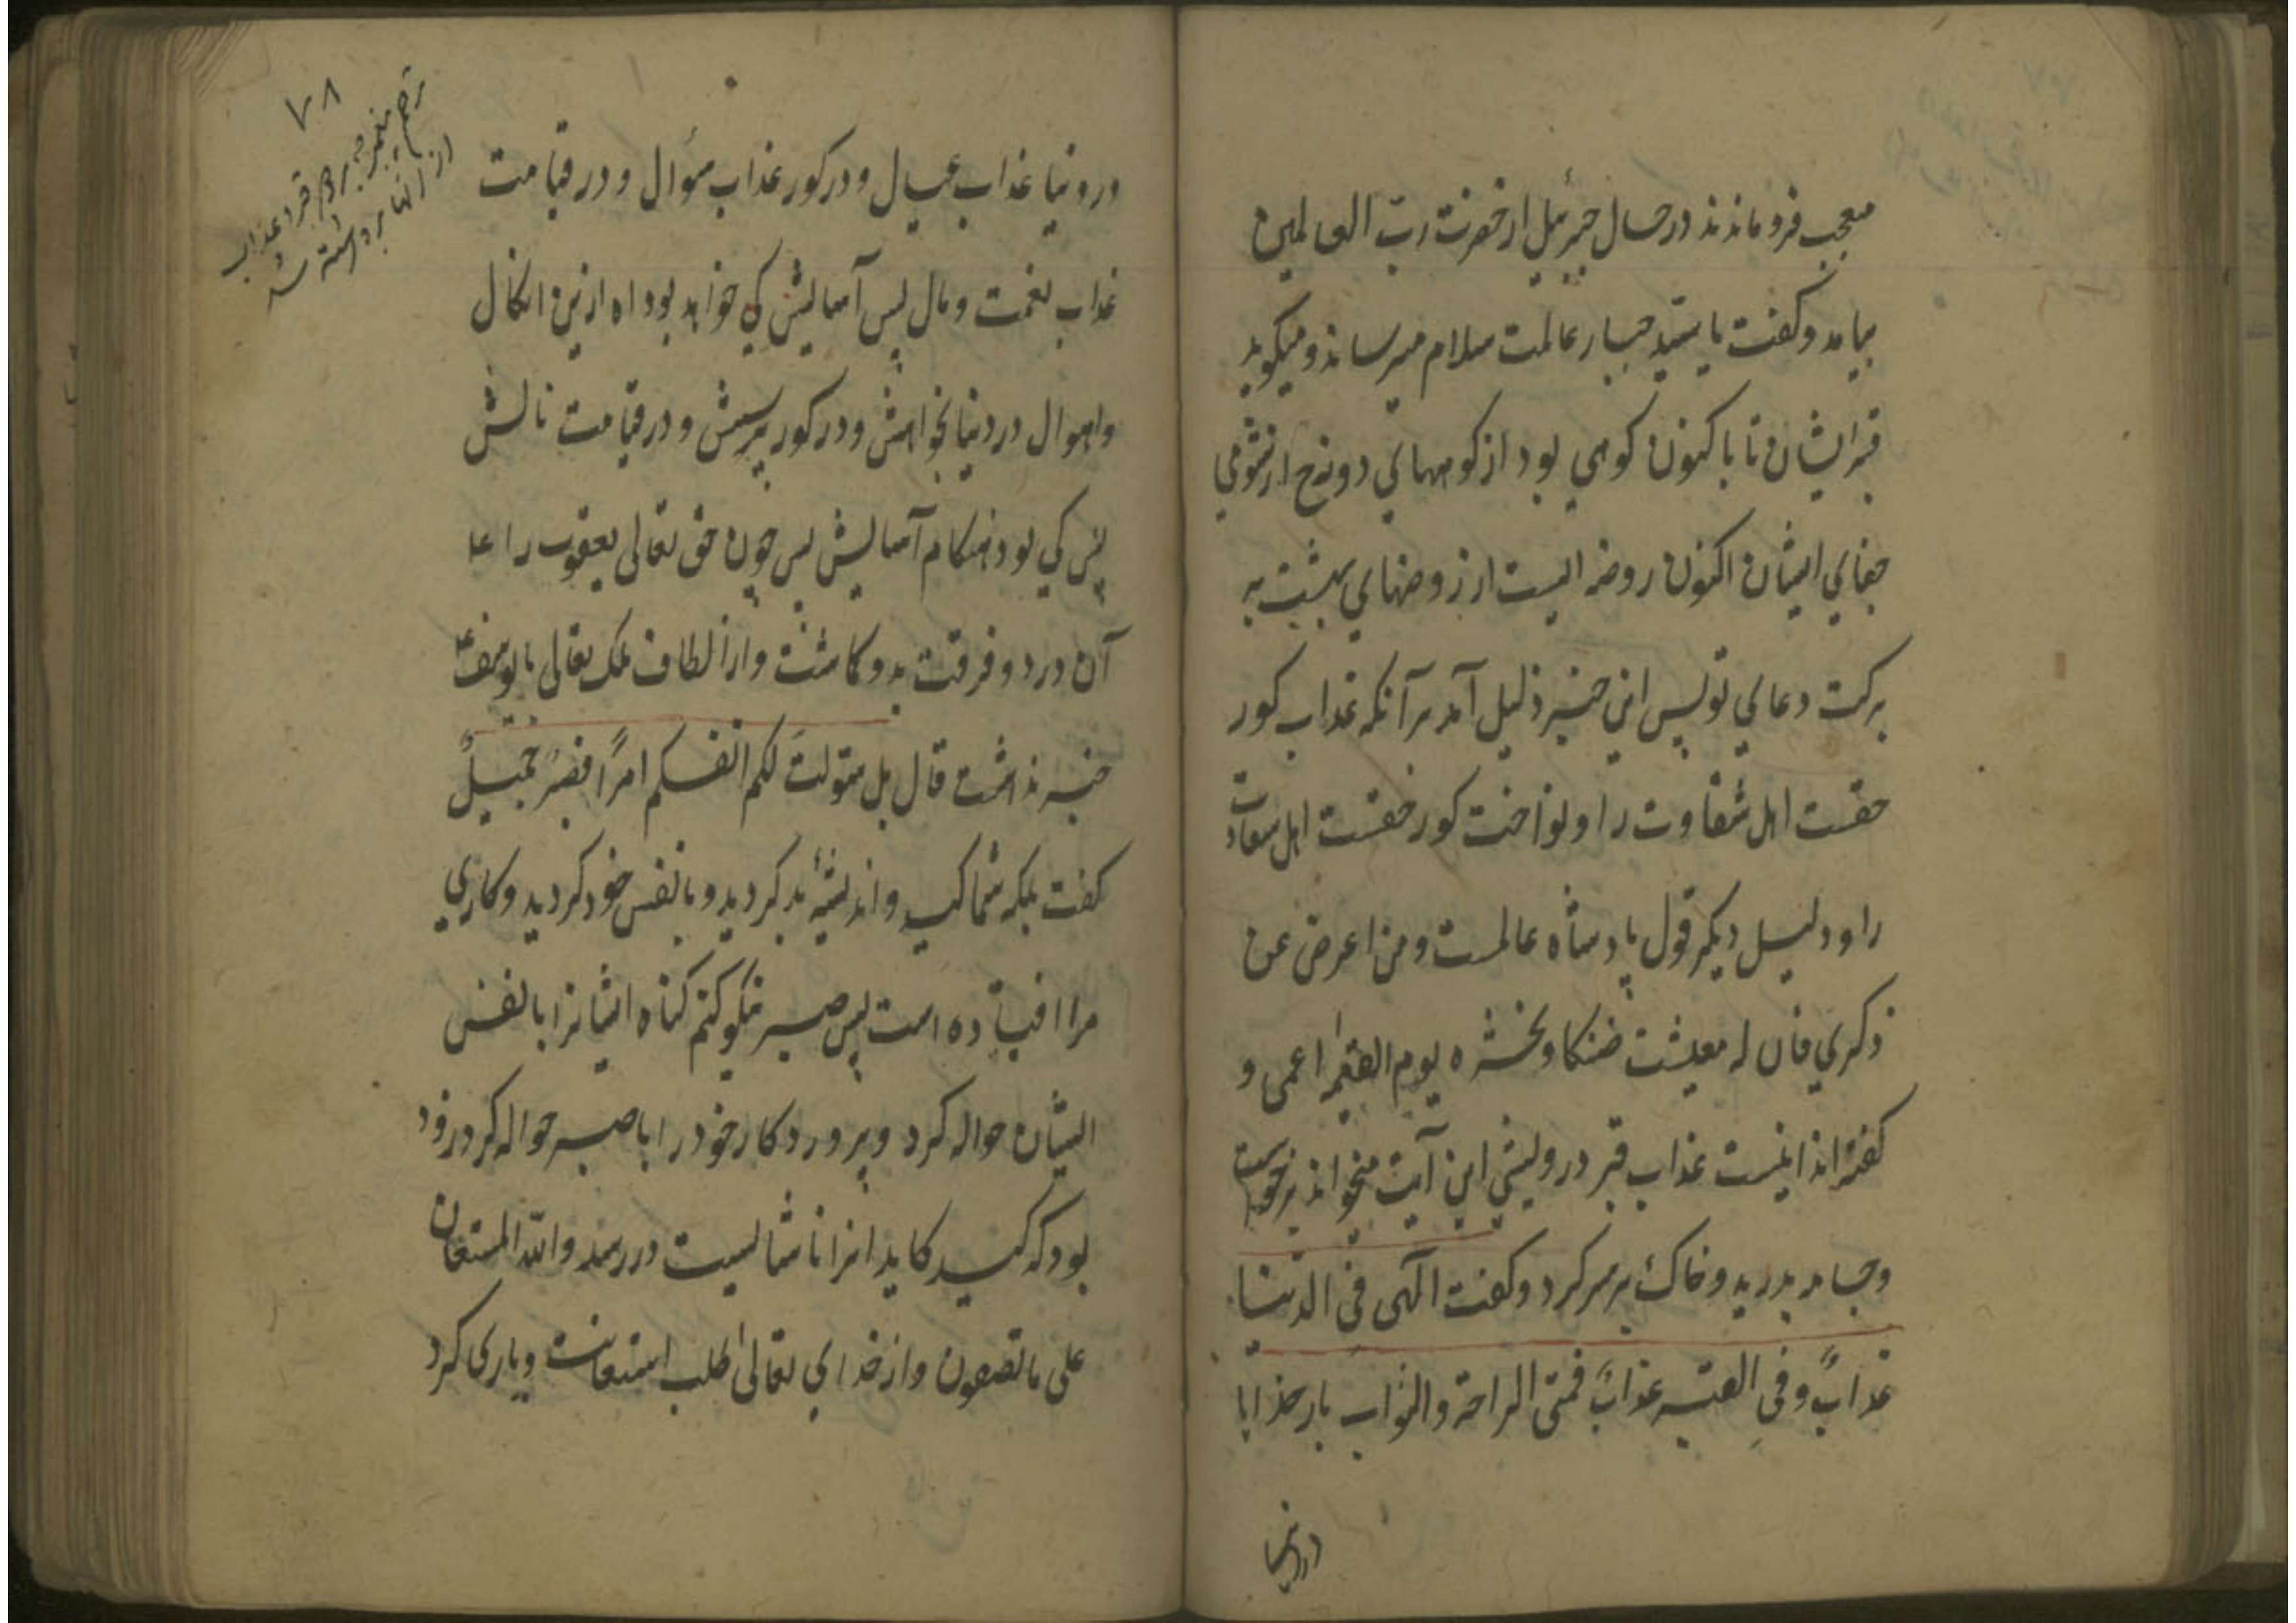 معجب فرو ماندند در حال جبرئیل از حضرت رب العالمین
بیامد و کفت یا سید جبار عالمت سلام میرساند و میکوید
قبر ایشان تا باکنون کوهی بود از کوههای دوزخ از شومی
جفای ایشان اکنون روضه ایست از روضهای بهشت به
برکت دعای تو پس این خبر دلیل آمد بر آنکه عذاب کور
حقست اهل شقاوت را و نواخت کور حقست اهل سعادت
را و دلیل دیکر قول پادشاه عالمست و من اعرض عن
ذکری فان له معیشت ضنکا و نحشره یوم القیمه اعمی و
کفته اند اینست عذاب قبر درویشی این آیت میخواند برخواست
و جامه بدرید و خاک بر سر کرد و کفت الهی فی الدنیا
عذابٌ و فی القبر عذابٌ فمتی الراحة والثواب بار خدایا
در دنیا
۷۸
در دنیا عذاب عیال و در کور عذاب سؤال و در قیامت
عذاب نعمت و مال پس آسایش کی خواهد بود اه ازین انکال
و اهوال در دنیا بخواهش و در کور پرسش و در قیامت نالش
پس کی بود هنکام آسایش پس چون حق تعالی یعقوب را ع
آن درد و فرقت بدو کاشت و از الطاف ملک تعالی با یوسف ع
خبر نداشت قال بل سوّلت لکم انفسکم امرًا فصبرٌ جمیلٌ
کفت بلکه شما کید و اندیشهٔ بد کردید و با نفس خود کردید و کاری
مرا افتاده است پس صبر نیکو کنم کناه ایشانرا با نفس
ایشان حواله کرد و پرورد کار خود را با صبر حواله کرد زود
بود که کید کایدانرا ناشایست در رسد والله المستعان
علی ما تصفون و از خدای تعالی طلب استعانت و یاری کرد